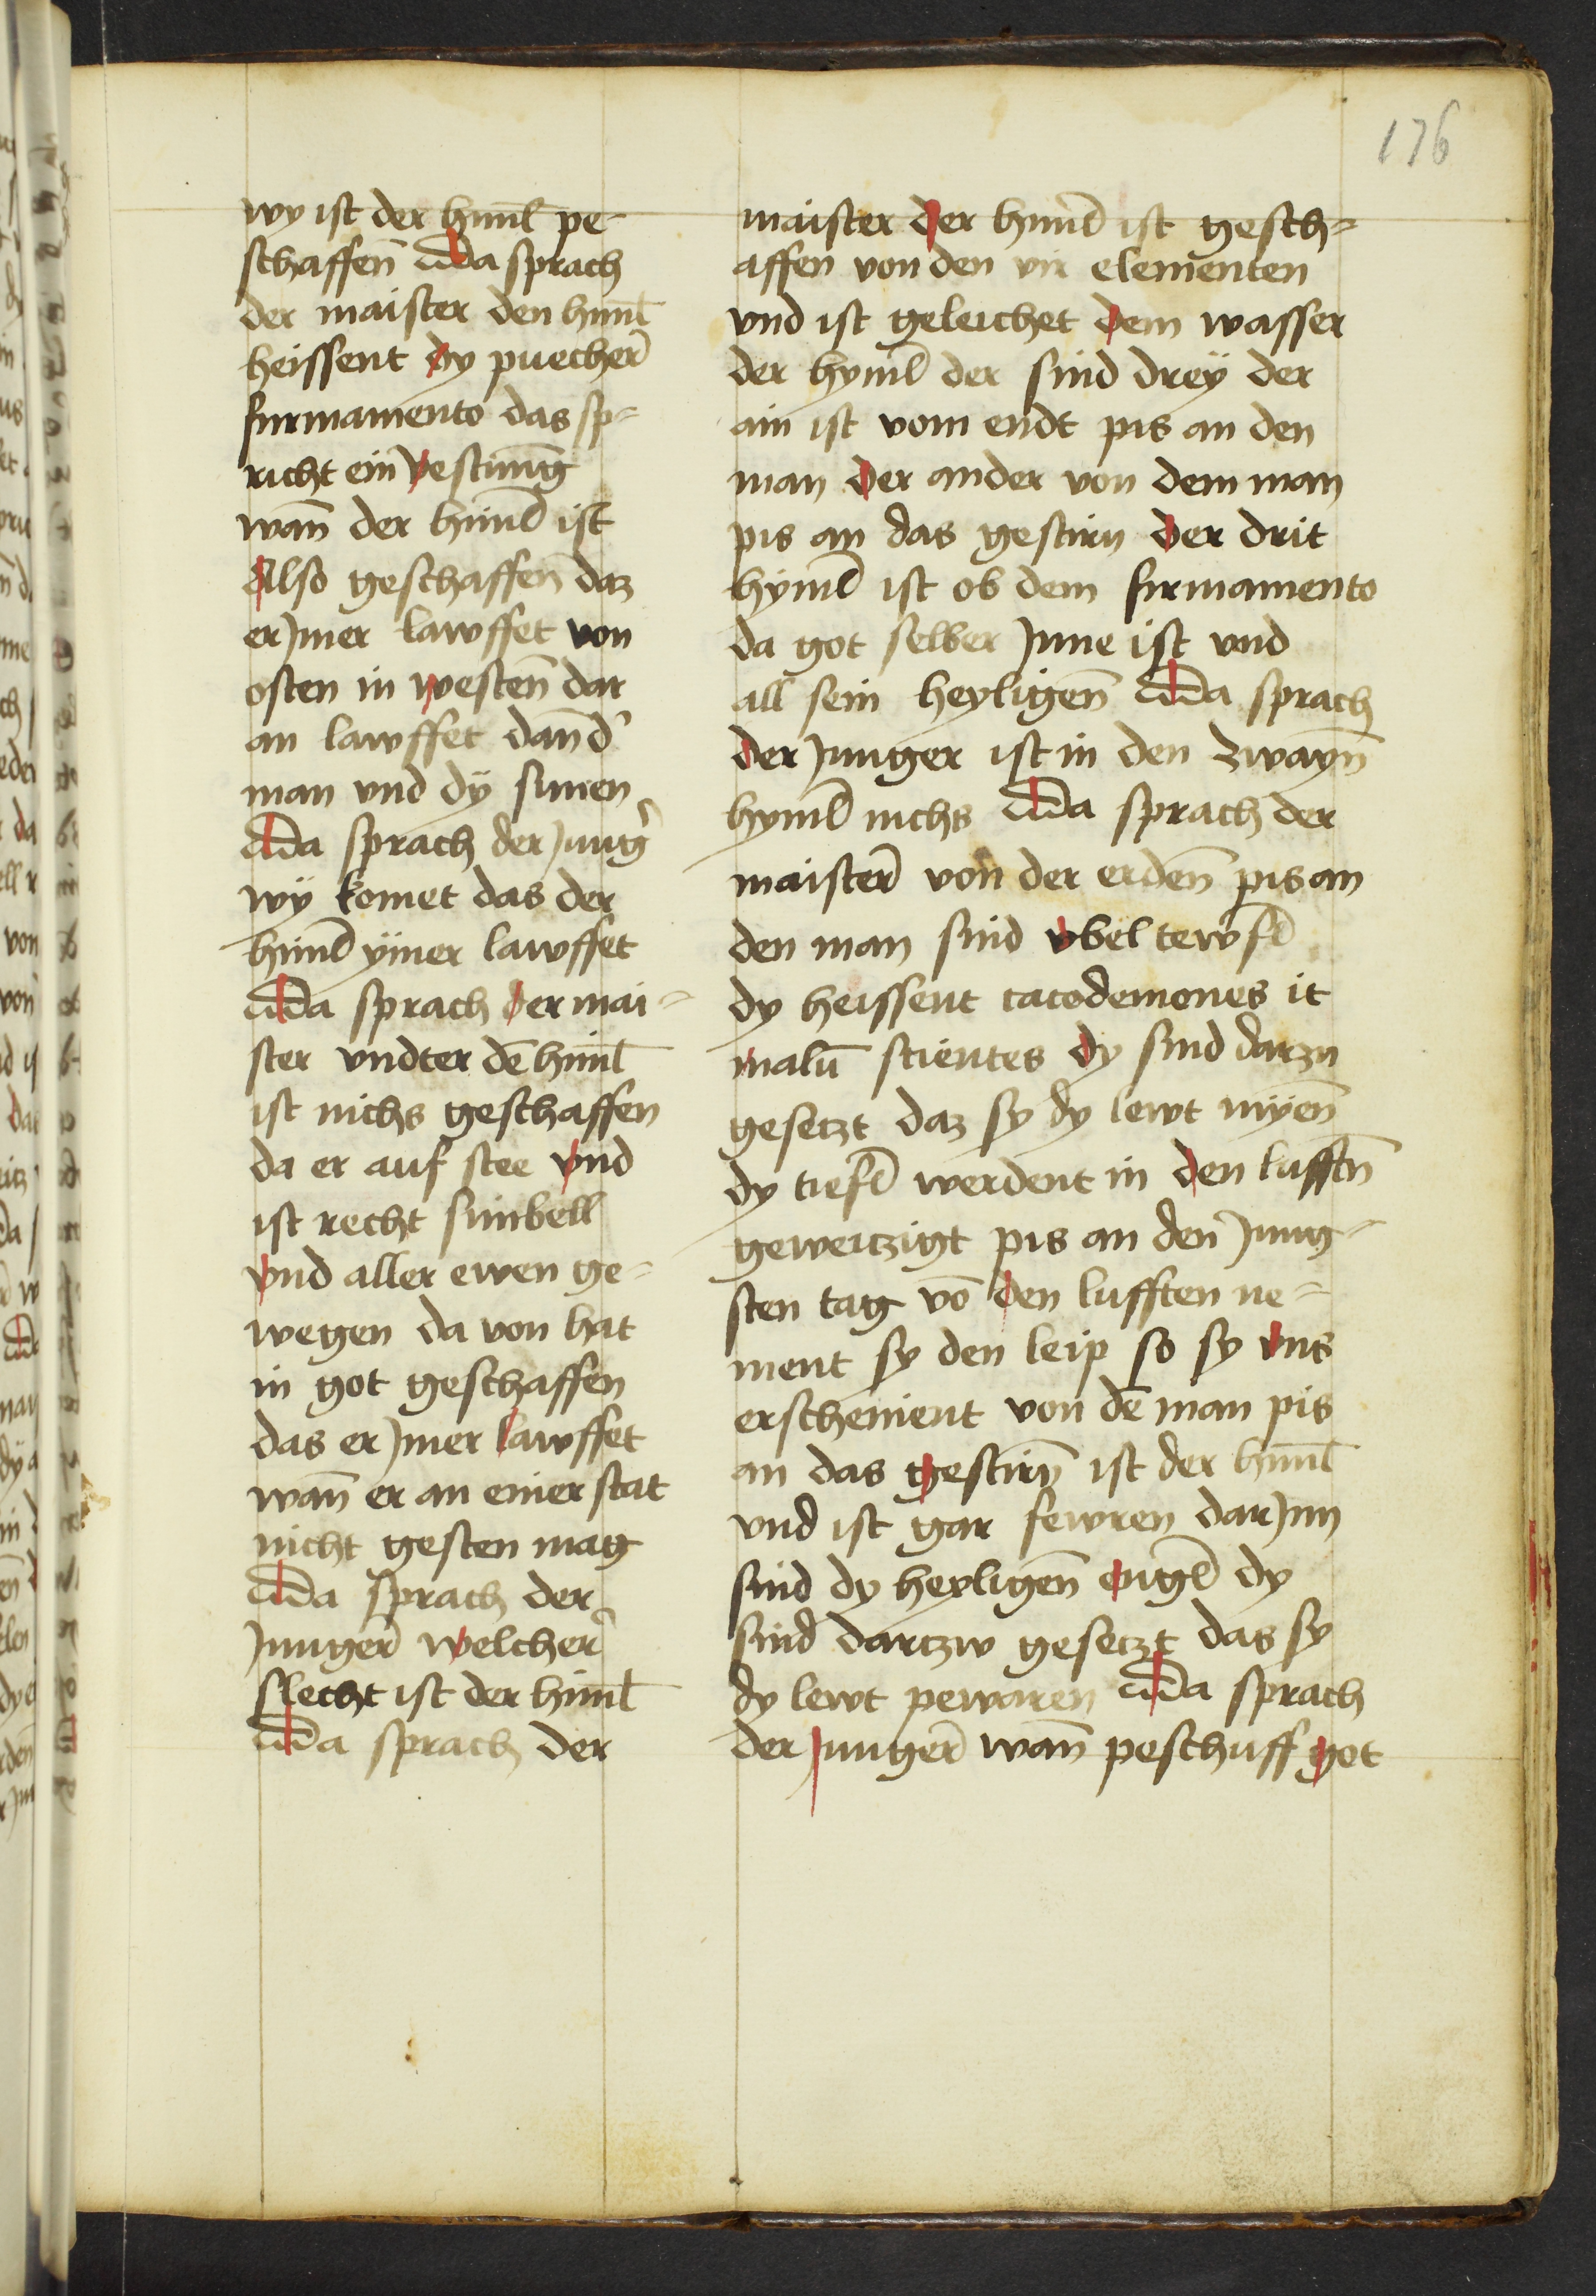 176
wy ist der himl̄ pe-
schaffen̄ Da sprach
der maister den himl̄
heissent dy puecher̄
firmamento das sp-
richt ein vestnunḡ
wan̄ der himl̄ ist
Also geschaffen̄ daz
er Jmer lawffet von
osten in westen̄ dar
an lawffet dan̄ d'
man vnd dÿ sunen
Da sprach der Jung'
wÿ komet das der
himl̄ ymer lawffet
Da sprach der mai-
ster vndter dē himl̄
ist nichs geschaffen
da er auf stee vnd
ist recht sinbell
vnd aller ewen ge-
wegen da von hat
in got geschaffen
das er Jmer lawffet
wan̄ er an einer stat
nicht gesten mag
Da sprach der
Junger̄ welcher̄
slecht ist der himl̄
Da sprach der
maister der himl̄ ist gesch-
affen von den vir elementen
vnd ist geleichet dem wasser
der hyml̄ der sind dreÿ der
ain ist vom endt pis an den
man der ander von dem man
pis an das gestirn der drit
hyml̄ ist ob dem firmamento
da got selber Jnne ist vnd
all sein heyligen̄ Da sprach
der Junger ist in den zwayn̄
hyml̄ nichs Da sprach der
maister̄ von der erden̄ pis an
den man sind vbel tewfl̄
dy heissent cacodemones it
malū scientes dy sind darzu
gesetzt daz sy dy lewt müen̄
dy tiefl̄ werdent in den lufftn̄
geweitzigt pis an den Jung-
sten tag vō den lufften ne-
ment sy den leip so sy vns
erschenient von dē man pis
an das gestirn̄ ist der himl̄
vnd ist gar fewren dar Jnn
sind dy heyligen̄ engl̄ dy
sind dartzw gesetzt das sy
dy lewt pewaren Da sprach
der Junger̄ wan̄ peschuff got